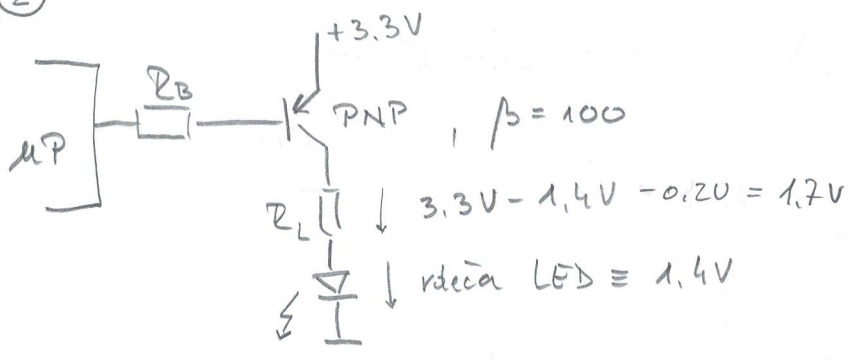 2
+3.3V
RB
PNP , β = 100
μP
RL 3.3V - 1,4V - 0.2V = 1,7V
rdeča LED ≡ 1.4V